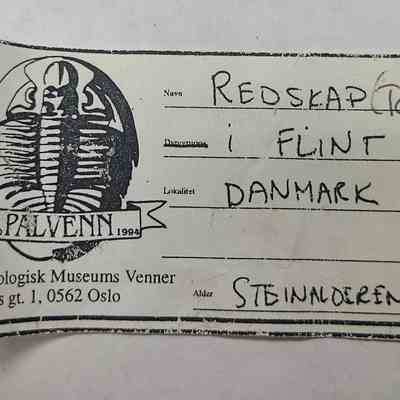 Navn REDSKAP
i FLINT
Lokalitet DANMARK
PALVENN 1994
ologisk Museums Venner
s gt. 1, 0562 Oslo
Alder STEINALDEREN